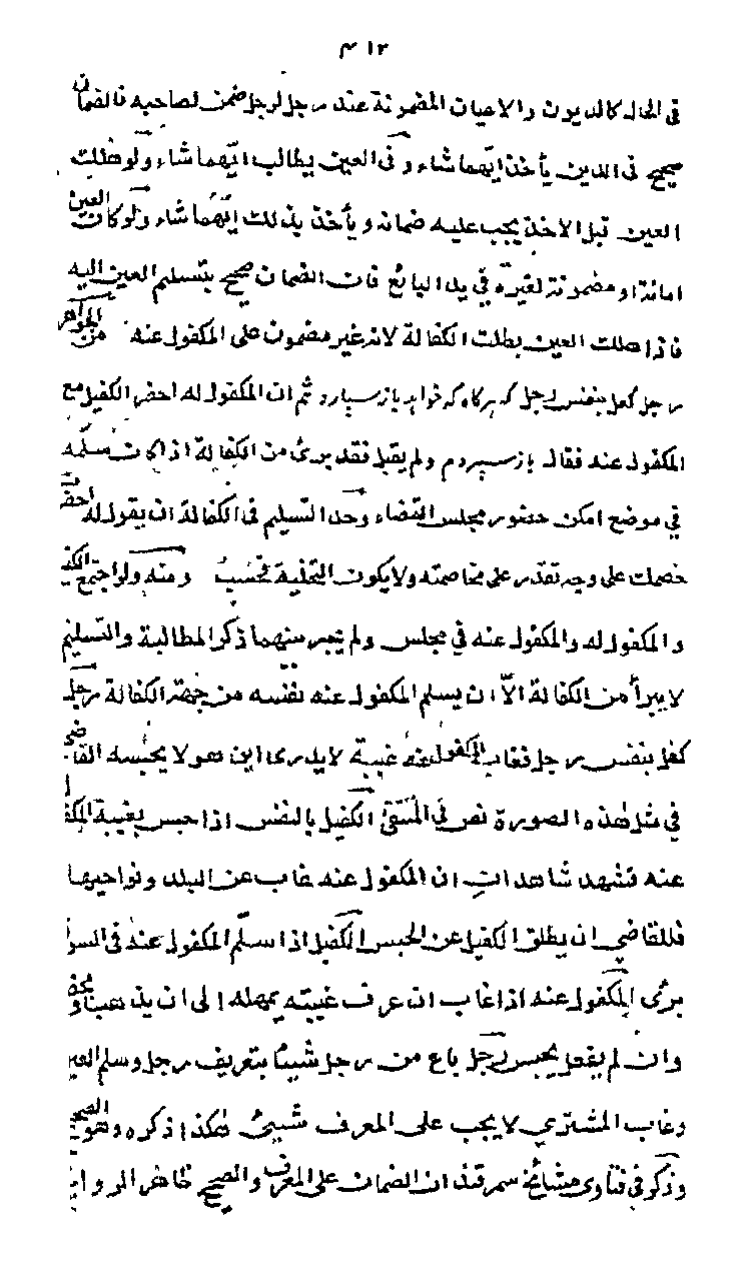 ١٣ م
في الحال كالديون والاعيان المضمونة عند رجل لرجل ضمن لصاحبه فالضمان
صحيح في الدين يأخذ ايهما شاء وفي العين يطالب ايهما شاء ولو هلكت
العين قبل الاخذ يجب عليه ضمانه ويأخذ بذلك ايهما شاء ولو كان العين
امانة او مضمونة لغيره في يد البائع فان الضمان صحيح بتسليم العين اليه
فاذا هلكت العين بطلت الكفالة لانه غير مضمون على المكفول عنه من الجواهر
رجل كفل بنفس رجل كه هركاه كه خواهد باز سپارد ثم ان المكفول له احضر الكفيل مع
المكفول عنه فقال باز سپردم ولم يقبل فقد برئ من الكفالة اذا كان سلمه
في موضع امكن حضور مجلس القضاء وحد التسليم في الكفالة ان يقول له احضر
خصمك على وجه تقدر على مخاصمته ولا يكون التخلية فحسب ومنه ولو اجتمع الكفيل
والمكفول له والمكفول عنه في مجلس ولم يجر بينهما ذكر المطالبة والتسليم
لا يبرأ من الكفالة الا ان يسلم المكفول عنه نفسه من جهة الكفالة رجل
كفل بنفس رجل فغاب المكفول عنه غيبة لا يدرى اين هو لا يحبسه القاضي
في مثل هذه الصورة نص في المنتقى الكفيل بالنفس اذا حبس بغيبة المكفول
عنه فشهد شاهدان ان المكفول عنه غاب عن البلد ونواحيها
فللقاضي ان يطلق الكفيل عن الحبس الكفيل اذا سلم المكفول عنه في السوق
برئ المكفول عنه اذا غاب ان عرف غيبته يمهله الى ان يذهب
وان لم يفعل يحبس رجل باع من رجل شيئا بتعريف رجل وسلم العين
وغاب المشتري لا يجب على المعرف شيئ هكذا ذكره وهو الصحيح
وذكر في فتاوى مشائخ سمرقند ان الضمان على المعرف والصحيح ظاهر